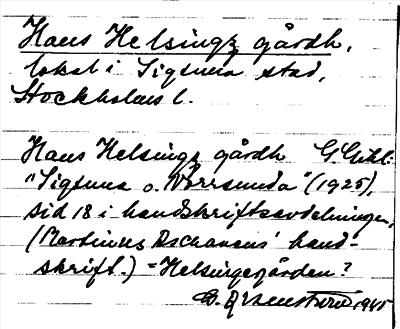 Hans Helsingz gårdh,
lokal i Sigtuna stad,
Stockholms l.
Hans Helsingz gårdh G. Gihl:
"Sigtuna o. Norrsunda" (1925),
sid 18 i handskriftsavdelningen,
(Martinus Aschaneus' hand-
skrift.) = Helsingegården?
1945